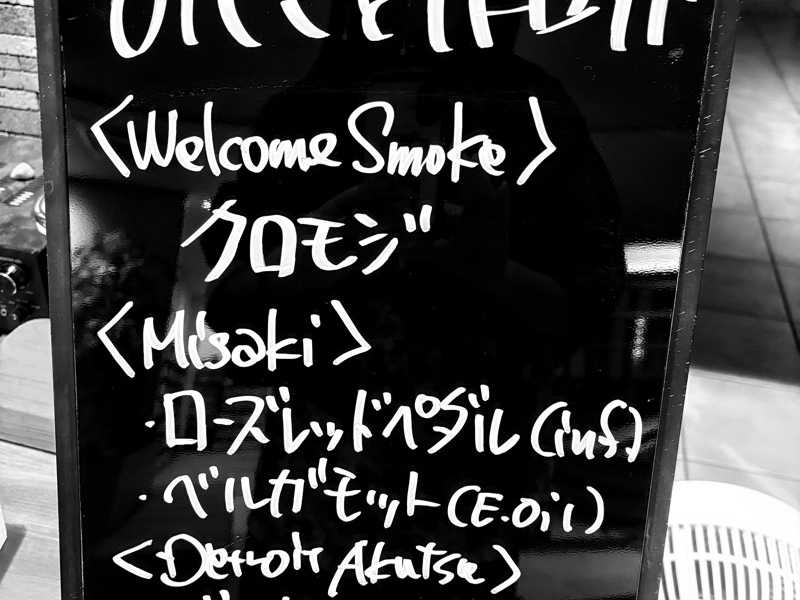 <Welcome Smoke>
クロモジ
<Misaki>
・ローズレッドペダル(inf)
・ベルガモット(E.Oil)
<Detroit Akutsu>